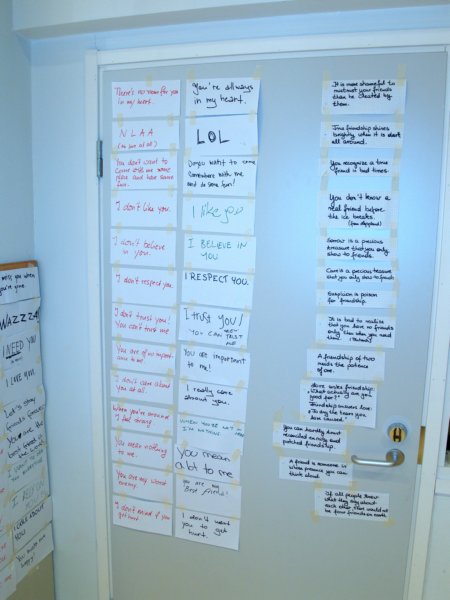 There's no room for you
in my heart.
NLAA
(to love at all)
You don't want to
come with me some
place and have some
fun.
I don't like you.
I don't believe
in you.
I don't respect you.
I don't trust you!
You can't trust me
You are of no impor-
tance to me.
I don't care about
you at all.
When you're around
I feel strong
You mean nothing
to me.
You are my worst
enemy.
I don't mind if you
get hurt
You're always
in my heart.
LOL
Do you want to come
somewhere with me
and do some fun!
I like you
I BELIEVE IN
YOU
I RESPECT YOU.
I trust you!
YOU CAN TRUST
ME
You are important
to me!
I really care
about you.
WHEN YOU'RE NOT HERE
I'M NOTHING
You mean
a lot to me
you are my
Best friend!
I don't want
you to get
hurt.
It is more shameful to
mistrust your friends
than be cheated by
them.
True friendship shines
brightly when it is dark
all around.
You recognize a true
friend in bad times.
You don't know a
real friend before
the ice breaks.
Sorrow is a precious
treasure that you only
show to friends.
Care is a precious treasure
that you only show to friends
Suspicion is poison
for friendship.
It is bad to realise
that you have no friends
only then when you
need them.
A friendship of two
needs the patience
of one.
Love asks friendship:
"What actually are you
good for?"
Friendship answers love:
"To dry the tears you
have caused."
You can hardly trust
reconciled enmity and
patched friendship.
A friend is someone in
whose presence you can
think aloud.
If all people knew
what they say about
each other, there would not
be four friends on earth.
miss you when
you're gone.
WAZZZA
I NEED YOU
I LOVE YOU
Let's stay
friends forever